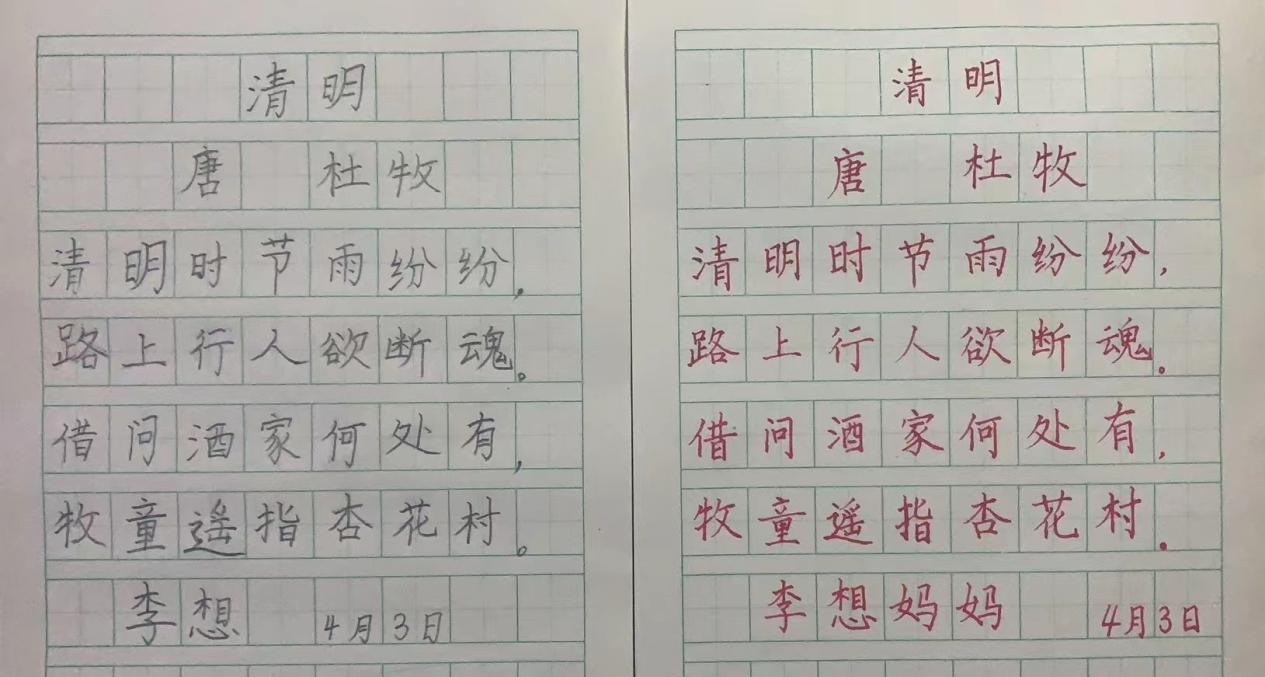 清明
唐 杜牧
清明时节雨纷纷,
路上行人欲断魂。
借问酒家何处有,
牧童遥指杏花村。
李想 4月3日
清明
唐 杜牧
清明时节雨纷纷,
路上行人欲断魂.
借问酒家何处有,
牧童遥指杏花村.
李想妈妈 4月3日